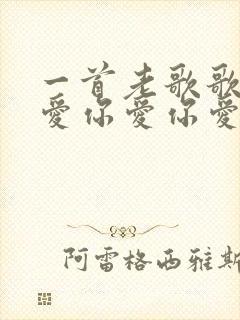 一首老歌歌
爱你爱你爱
阿雷格西雅斯